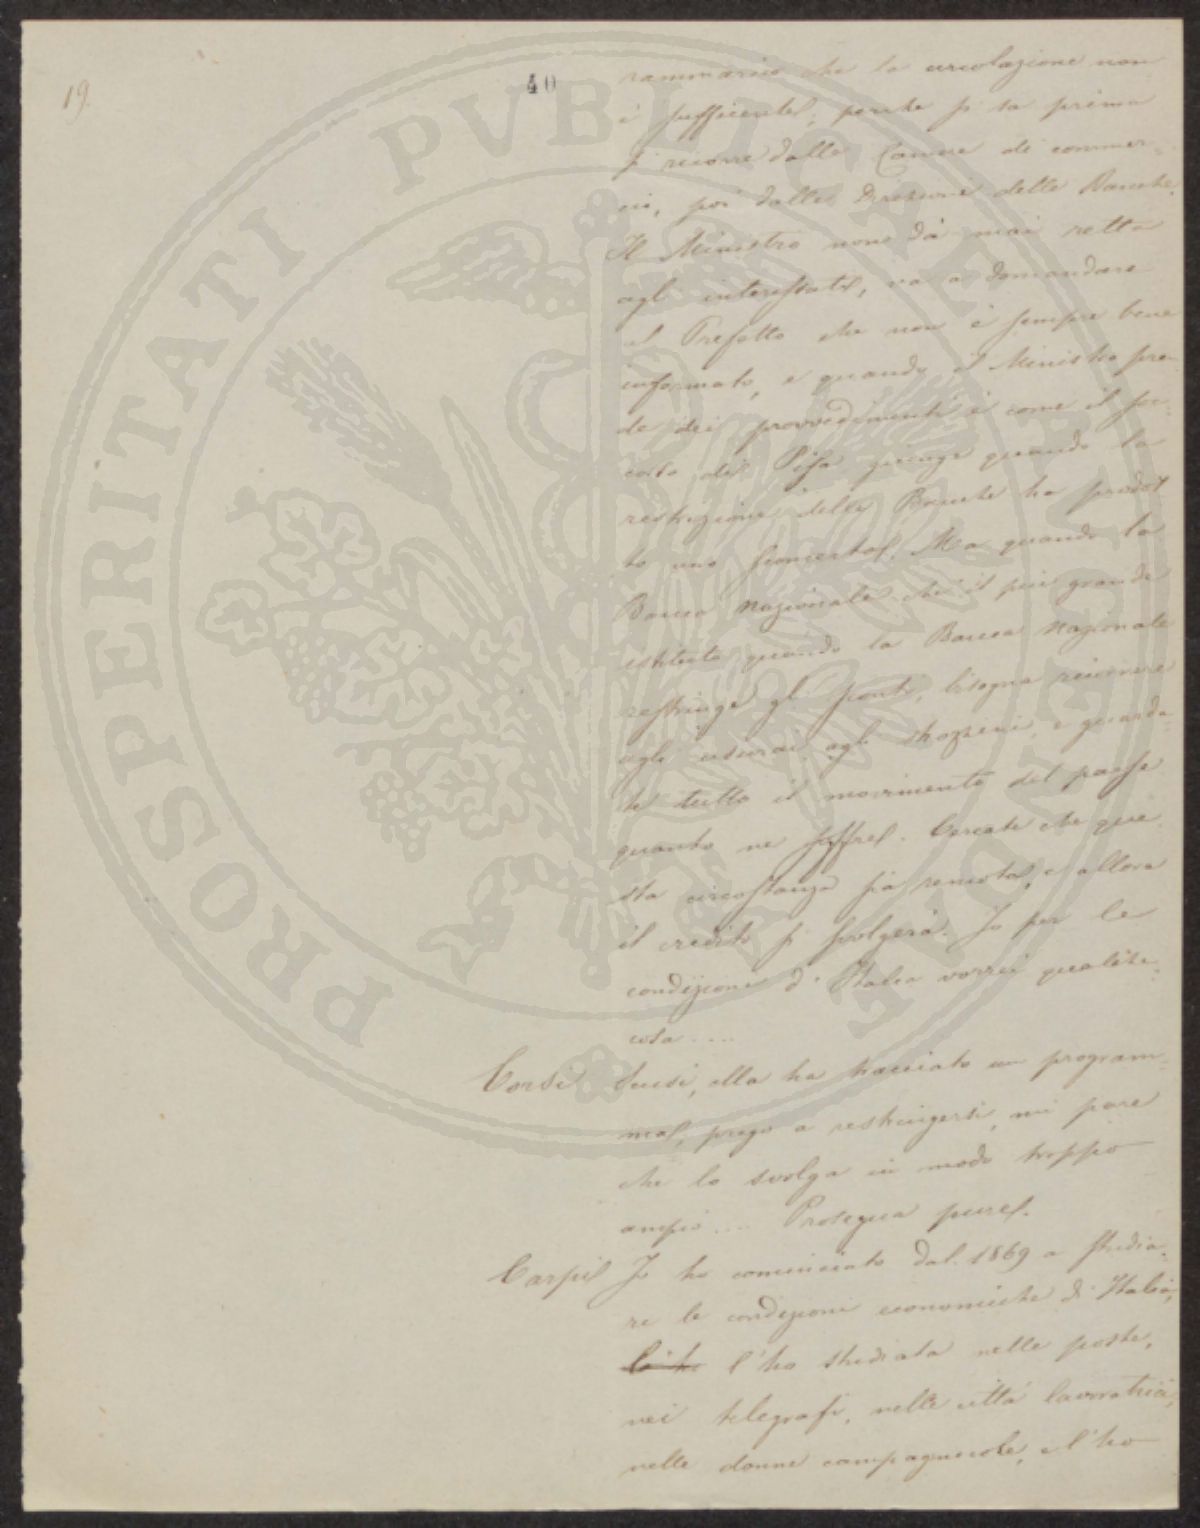 19.
40
rammarico che la circolazione non
è sufficiente, perchè si sa prima
si ricorre dalle Camere di commer=
cio, poi dalle Direzioni delle Banche.
Il Ministro non dà mai retta
agl' interessati, va a domandare
al Prefetto che non è sempre bene
informato, e quando il Ministro pren
de dei provvedimenti è come il soc=
corso di Pisa giunge quando la
restrizione delle Banche ha prodot
to uno sconcerto. Ma quando la
Banca Nazionale ch'è il più grande
istituto quando la Banca Nazionale
restringe gli sconti, bisogna ricorrere
agli usurai, agli strozzini, e guarda=
te tutto il movimento del paese
quanto ne soffre. Cercate che que
sta circostanza sia remota, e allora
il credito si svolgerà. Io per le
condizioni d'Italia vorrei qualche
cosa ....
Corsi Scusi, ella ha tracciato un program=
ma, prego a restringersi, mi pare
che lo svolga in modo troppo
ampio .... Prosegua pure.
Carpi Io ho cominciato dal 1869 a studia=
re le condizioni economiche d'Italia,
l'ho l'ho studiata nelle poste,
nei telegrafi, nelle città lavoratrici,
nelle donne campagnuole, e l'ho
PROSPERITATI PVBLICAE AVGENDAE